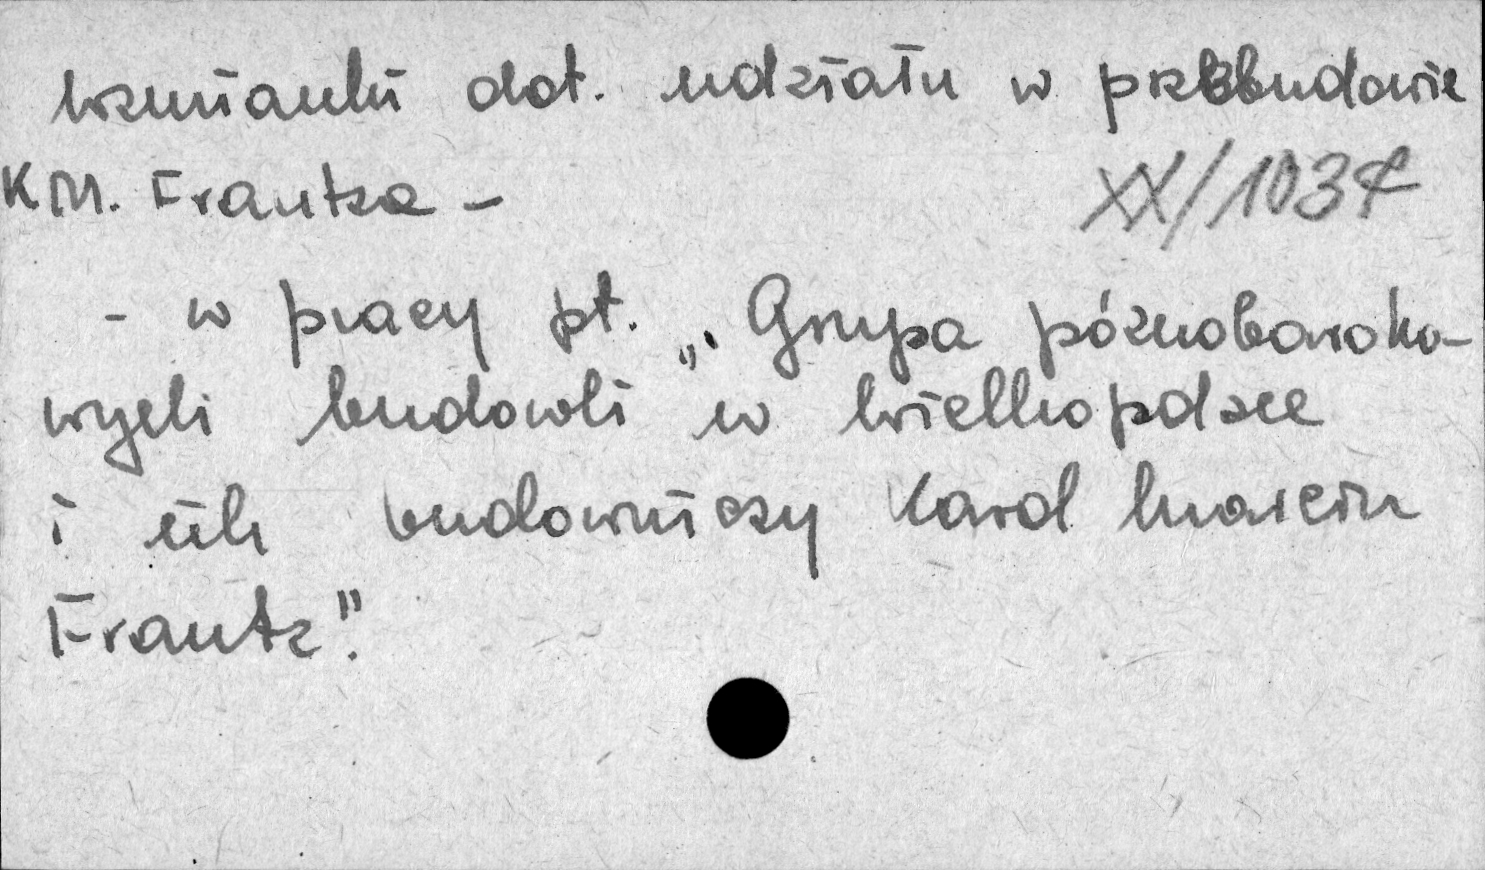 wzmianki dot. udziału w przebudowie
K M. Frantza -
XX/1037
- w pracy pt. „Grupa późnobaroko-
wych budowli w Wielkopolsce
i ich budowniczy Karol Marcin
Frantz".